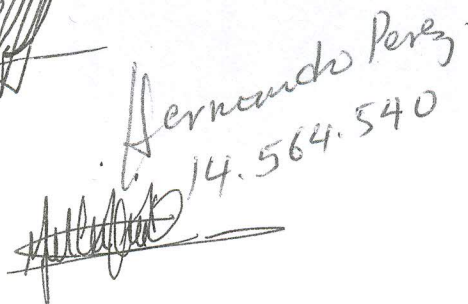 Hernando Perez
14.564.540